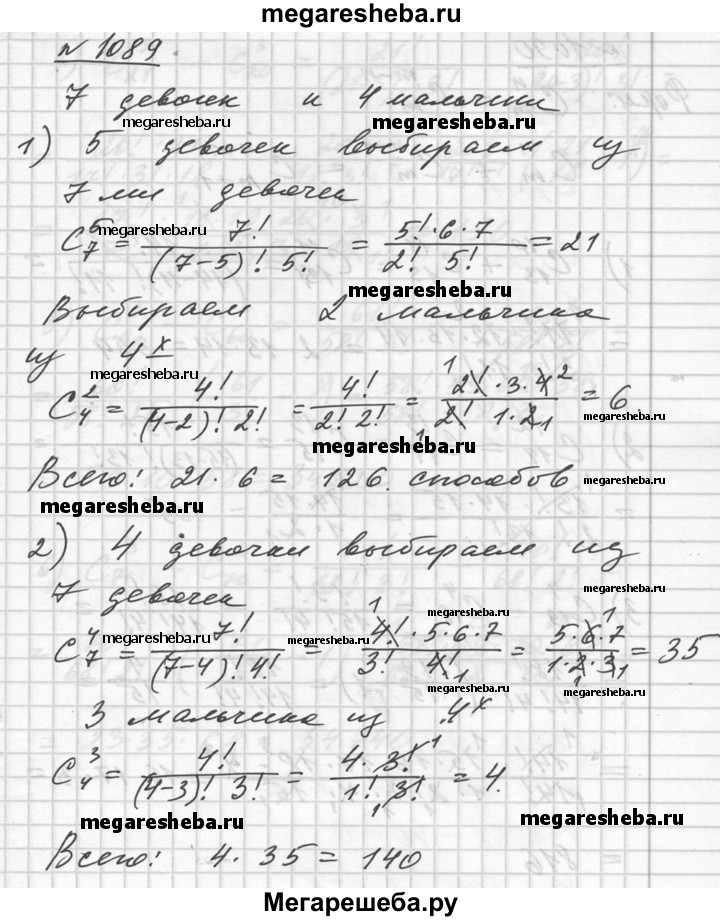 megaresheba.ru
№ 1089.
7 девочек и 4 мальчика
megaresheba.ru megaresheba.ru
1) 5 девочек выбираем из
7ми девочек
megaresheba.ru
C₇⁵ = 7! / ((7-5)! 5!) = 5!·6·7 / (2! 5!) = 21
megaresheba.ru
Выбираем 2 мальчика
из 4х
megaresheba.ru
C₄² = 4! / ((4-2)! 2!) = 4! / (2! 2!) = 2!·3·4 / (2! 1·2) = 6.
megaresheba.ru
megaresheba.ru
Всего: 21·6 = 126. способов
megaresheba.ru
megaresheba.ru
2) 4 девочки выбираем из
megaresheba.ru
7 девочек
megaresheba.ru megaresheba.ru megaresheba.ru
C₇⁴ = 7! / ((7-4)! 4!) = 4!·5·6·7 / (3! 4!) = 5·6·7 / (1·2·3) = 35
megaresheba.ru megaresheba.ru
3 мальчика из 4х
C₄³ = 4! / ((4-3)! 3!) = 4·3! / (1! 3!) = 4.
megaresheba.ru megaresheba.ru
Всего: 4·35 = 140
Мегарешеба.ру